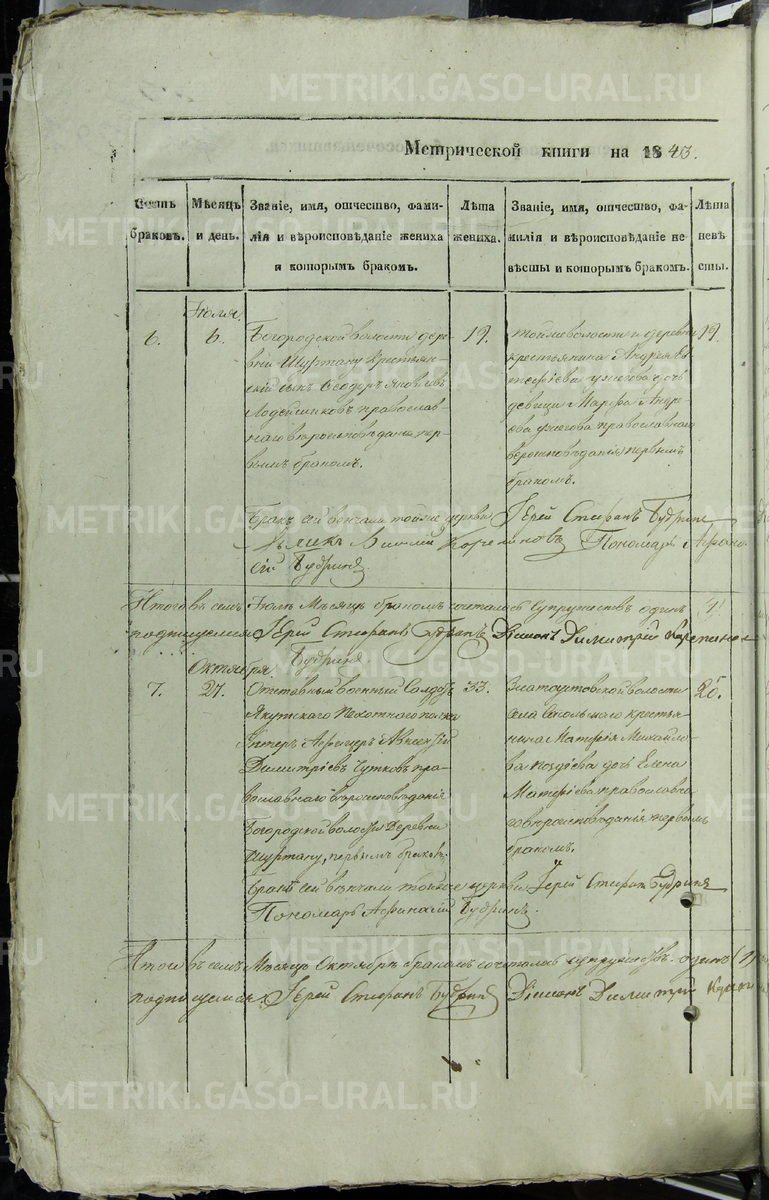 METRIKI.GASO-URAL.RU
Метрической книги на 1843.
Счетъ браковъ.
Мѣсяцъ и день.
Званіе, имя, отчество, фами-
лія и вѣроисповѣданіе жениха
и которымъ бракомъ.
Лѣта
жениха.
Званіе, имя, отчество, фа-
милія и вѣроисповѣданіе не
вѣсты и которымъ бракомъ.
Лѣта
невѣ
сты.
Іюля
6.
6.
Богородской волости дере-
вни Шуртану Крестьян-
скій сынъ Ѳеодоръ Яковлевъ
православ-
наго вѣроисповѣданія пер-
вымъ бракомъ.
19.
тойже волости и деревни
крестьянина Андрея
дочь
девица Марфа Андре-
ева православнаго
вѣроисповѣданія первымъ
бракомъ.
19.
Бракъ сей венчали тойже церкви Іерей Стефанъ Будринъ
Пономарь Афана-
сій Будринъ
Итого въ семъ Іюлѣ Мѣсяцѣ бракомъ сочеталось супружествъ одинъ (1)
подписуемся Іерей Стефанъ Будринъ Діаконъ Димитрій
Будринъ
Октября
7.
27.
Отставный военный Солдатъ
Якутскаго Пехотнаго полка
Димитріевъ Чутковъ пра-
вославнаго вѣроисповѣданія
Богородской волости Деревни
Шуртану, первымъ бракомъ.
33.
Златоустовской волости
села крестья-
нина Матфія Михайло-
ва дочь Елена
Матфіева православна-
го вѣроисповѣданія первымъ
бракомъ.
25.
Бракъ сей вѣнчали тойже церкви Іерей Стефанъ Будринъ
Пономарь Афанасій Будринъ.
Итого въ семъ Мѣсяцѣ Октябрѣ бракомъ сочеталось супружествъ одинъ (1)
подписуемся Іерей Стефанъ Будринъ Діаконъ Димитрій